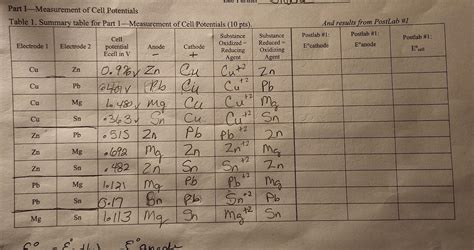 Part I—Measurement of Cell Potentials
Table 1. Summary table for Part I—Measurement of Cell Potentials (10 pts). And results from PostLab #1
Electrode 1 Electrode 2 Cell potential Ecell in V Anode − Cathode + Substance Oxidized = Reducing Agent Substance Reduced = Oxidizing Agent Postlab #1: E°cathode Postlab #1: E°anode Postlab #1: E°cell
Cu Zn 0.996v Zn Cu Cu+2 Zn
Cu Pb Pb Cu Cu+2 Pb
Cu Mg 1.480v Mg Cu Cu+2 Mg
Cu Sn .363v Sn Cu Cu+2 Sn
Zn Pb .515 Zn Pb Pb+2 Zn
Zn Mg .692 Mg Zn Zn+2 Mg
Zn Sn .482 Zn Sn Sn+2 Zn
Pb Mg 1.121 Mg Pb Pb+2 Mg
Pb Sn 0.17 Sn Pb Sn+2 Pb
Mg Sn 1.113 Mg Sn Mg+2 Sn